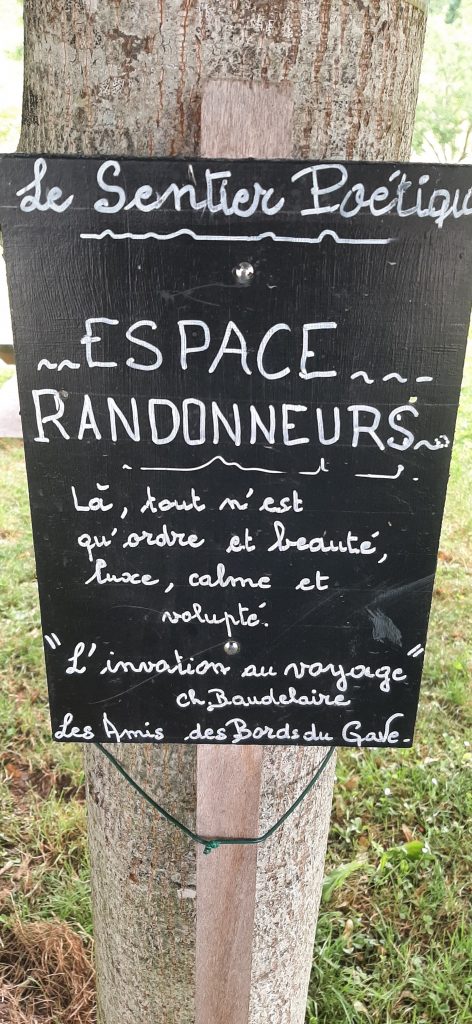 Le Sentier Poétiqu
ESPACE
RANDONNEURS
Là, tout n'est
qu'ordre et beauté,
luxe, calme et
volupté.
"L'invation au voyage"
ch. Baudelaire
Les Amis des Bords du Gave.